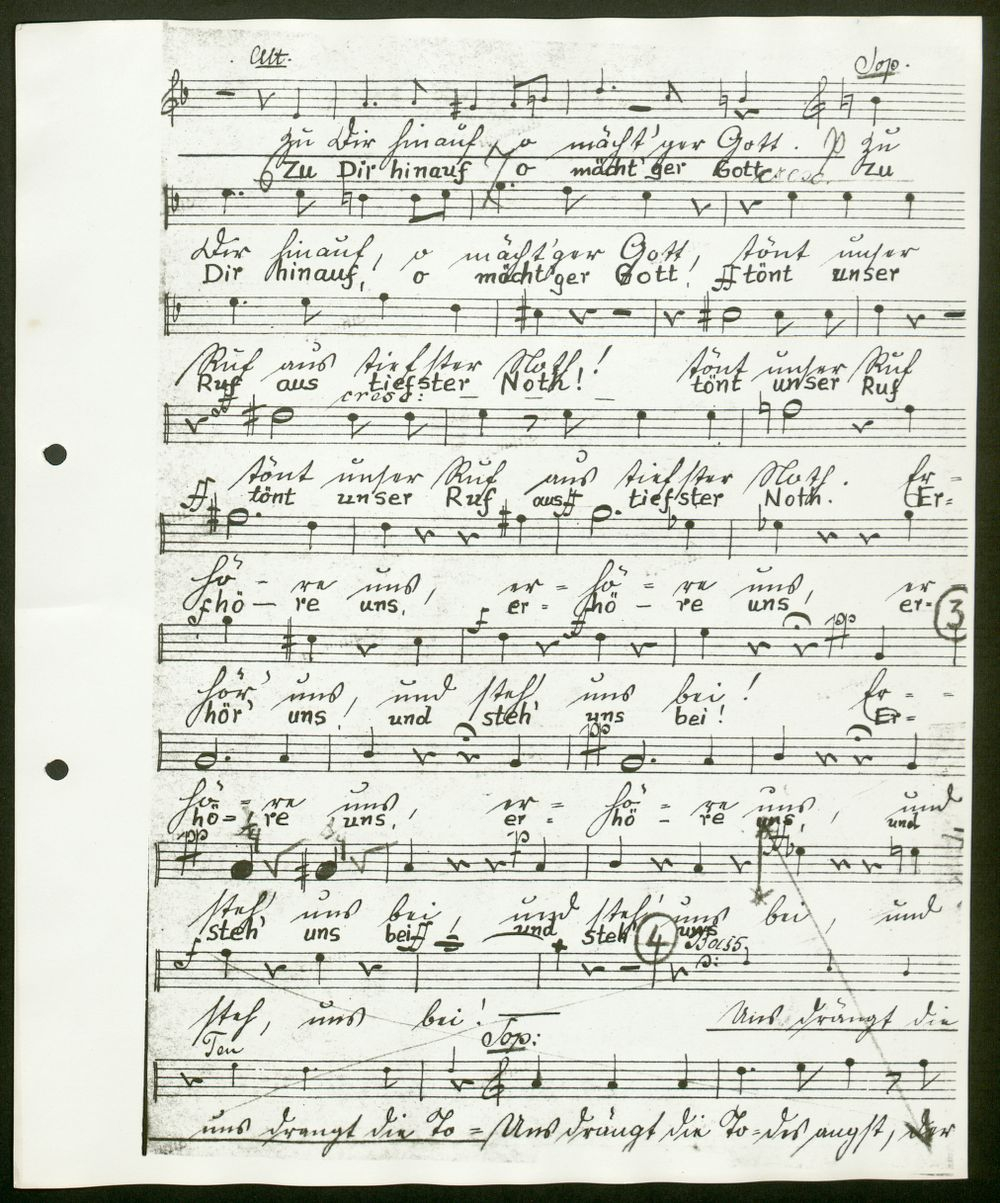 Alt. Sop.
zu Dir hinauf, o mächt'ger Gott. P zu
Zu Dir hinauf, o mächt'ger Gott cresc. zu
Dir hinauf, o mächt'ger Gott, tönt unser
Dir hinauf, o mächt'ger Gott! ff tönt unser
Ruf aus tiefster Noth! tönt unser Ruf
Ruf aus tiefster Noth! tönt unser Ruf
ff cresc:
tönt unser Ruf aus tiefster Noth. Er=
ff tönt unser Ruf aus ff tiefster Noth. Er=
hö - re uns, er = hö = re uns, er
f hö — re uns, er = hö — re uns, er=
3
f f ff pp
hör' uns, und steh' uns bei! Er - -
hör' uns, und steh' uns bei! Er=
pp
hö = re uns, er = hö = re uns, und
hö = re uns, er = hö — re uns, und
pp p
steh' uns bei, und steh' uns bei, und
steh' uns bei ff und steh' uns
4
Bass
f
steh, uns bei! Uns drängt die
Ten Sop:
uns drengt die To = Uns drängt die To=des angst, der